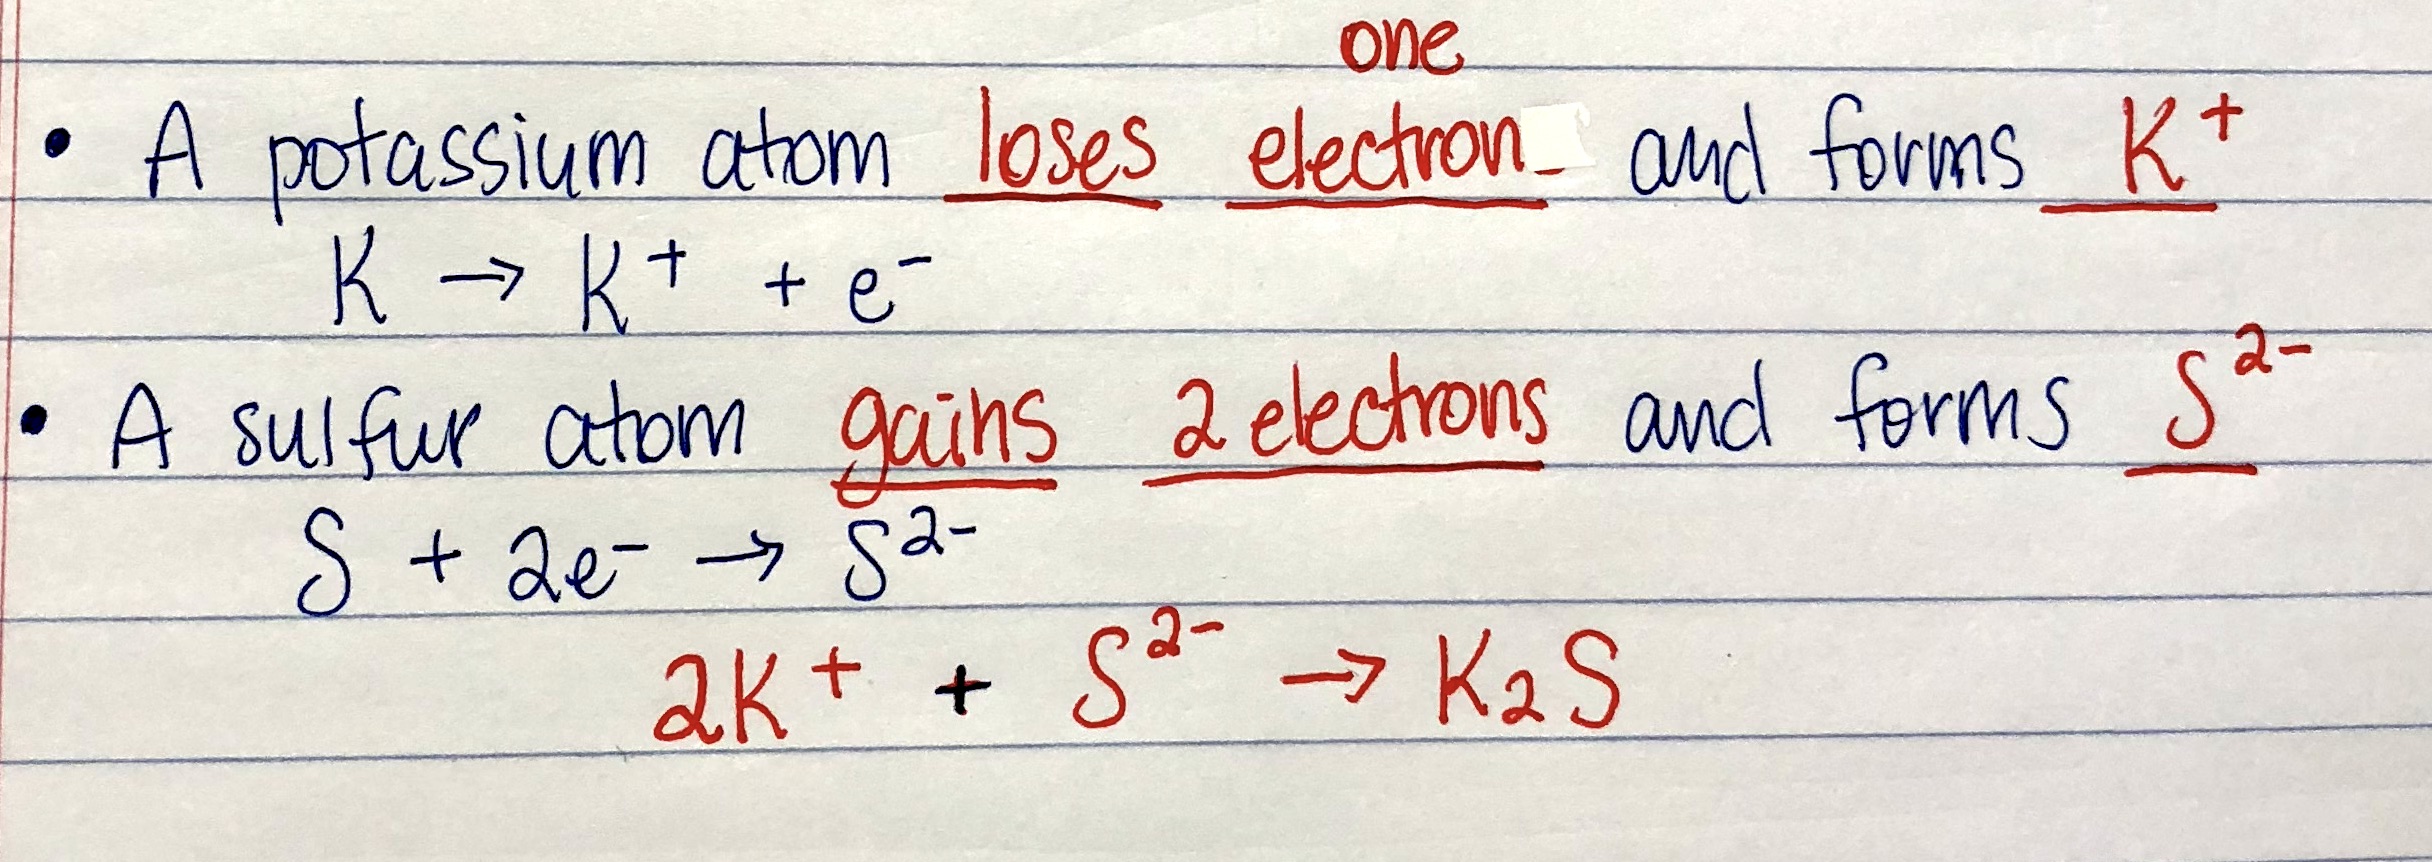 one
• A potassium atom loses electron and forms K⁺
K → K⁺ + e⁻
• A sulfur atom gains 2 electrons and forms S²⁻
S + 2e⁻ → S²⁻
2K⁺ + S²⁻ → K₂S